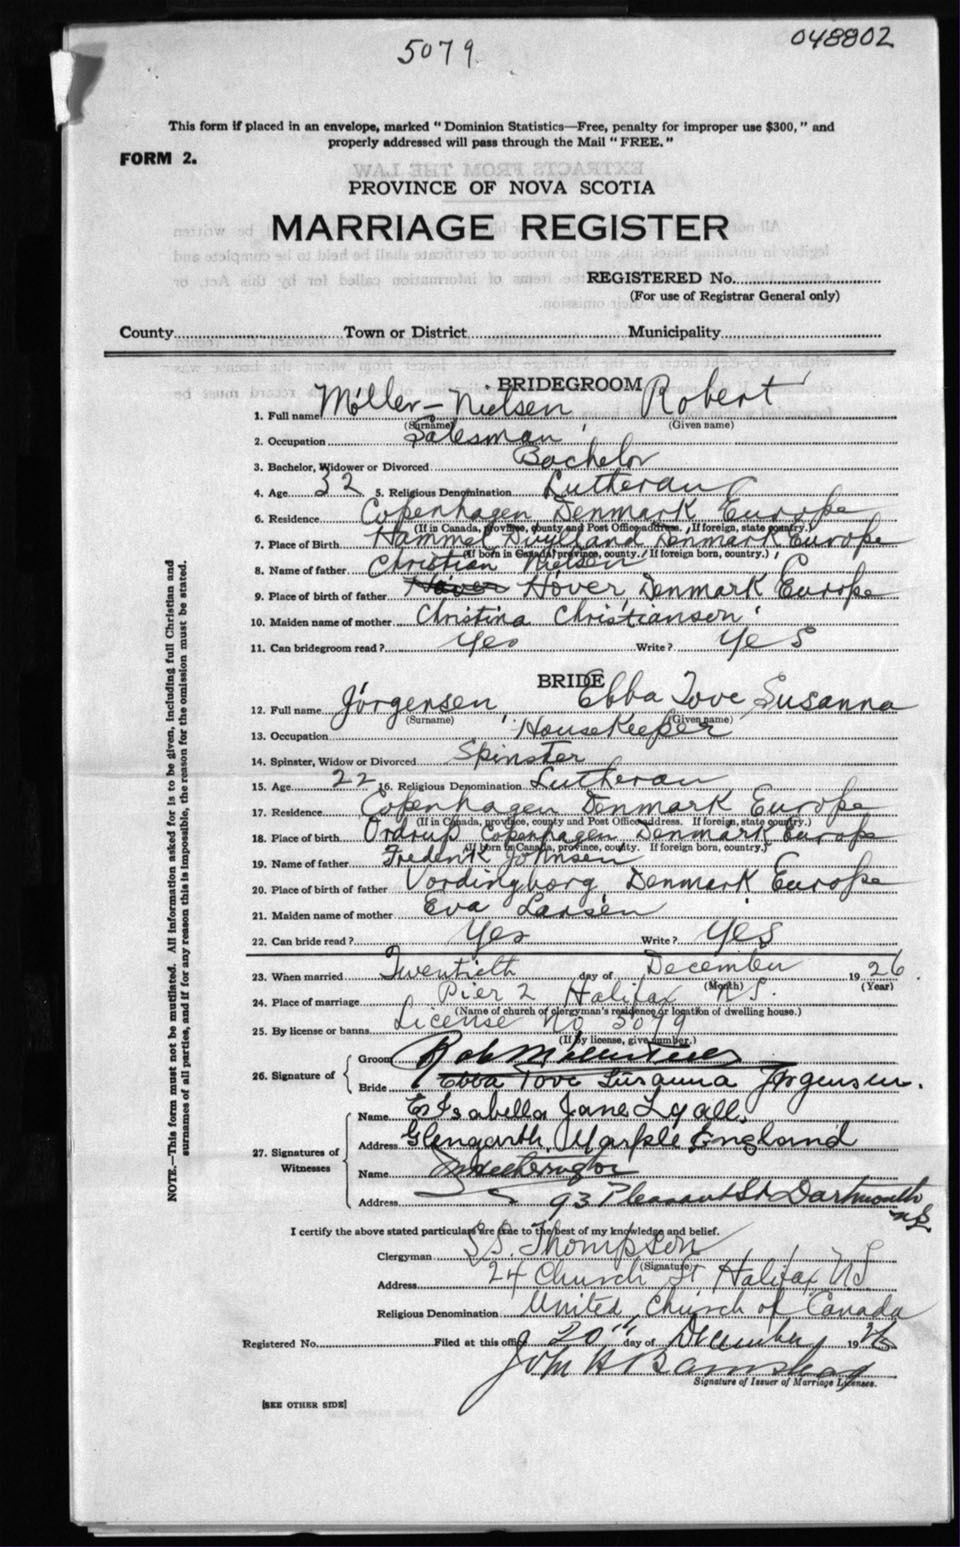 5079.
048802
This form if placed in an envelope, marked "Dominion Statistics—Free, penalty for improper use $300," and
properly addressed will pass through the Mail "FREE."
FORM 2.
PROVINCE OF NOVA SCOTIA
MARRIAGE REGISTER
REGISTERED No.
(For use of Registrar General only)
County Town or District Municipality
BRIDEGROOM
1. Full name Möller-Nielsen Robert
(Surname) (Given name)
2. Occupation Salesman
3. Bachelor, Widower or Divorced Bachelor
4. Age 32 5. Religious Denomination Lutheran
6. Residence Copenhagen Denmark Europe
(If in Canada, province, county and Post Office address. If foreign, state country.)
7. Place of Birth Hammel Denmark Europe
(If born in Canada, province, county. If foreign born, country.)
8. Name of father Christian Nielsen
9. Place of birth of father Höver, Denmark Europe
10. Maiden name of mother Christina Christiansen
11. Can bridegroom read? Yes Write? Yes
BRIDE
12. Full name Jörgensen, Ebba Tove Susanna
(Surname) (Given name)
13. Occupation Housekeeper
14. Spinster, Widow or Divorced Spinster
15. Age 22 16. Religious Denomination Lutheran
17. Residence Copenhagen Denmark Europe
(If in Canada, province, county and Post Office address. If foreign, state country.)
18. Place of birth Ordrup Copenhagen Denmark Europe
(If born in Canada, province, county. If foreign born, country.)
19. Name of father Frederik Johnsen
20. Place of birth of father Vordingborg Denmark Europe
21. Maiden name of mother Eva Larsen
22. Can bride read? Yes Write? Yes
23. When married Twentieth day of December 1926
(Month) (Year)
24. Place of marriage Pier 2 Halifax N.S.
(Name of church or clergyman's residence or location of dwelling house.)
25. By license or banns License No 5079
(If by license, give number.)
26. Signature of Groom
Bride Ebba Tove Susanna Jörgensen.
27. Signatures of Witnesses
Name Isabella Jane Lyall
Address Glengarth, Marple England
Name
Address 93 Pleasant St Dartmouth
N.S.
I certify the above stated particulars are true to the best of my knowledge and belief.
Clergyman Thompson
(Signature)
Address 24 Church St Halifax NS
Religious Denomination United Church of Canada
Registered No. Filed at this office 20th day of December 1926
John H
Signature of Issuer of Marriage Licenses.
[SEE OTHER SIDE]
NOTE.—This form must not be mutilated. All information asked for is to be given, including full Christian and
surnames of all parties, and if for any reason this is impossible, the reason for the omission must be stated.